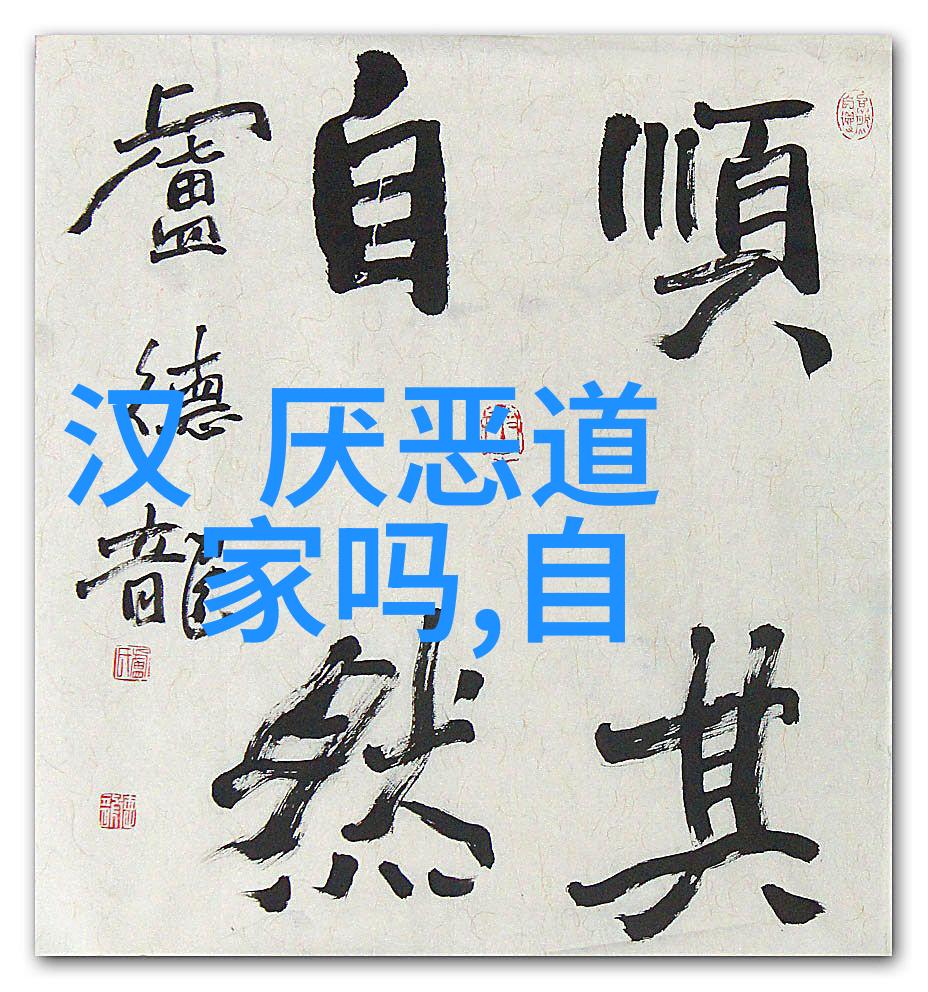 順其
自然
盧德龍
汉 厌恶道
家吗,自